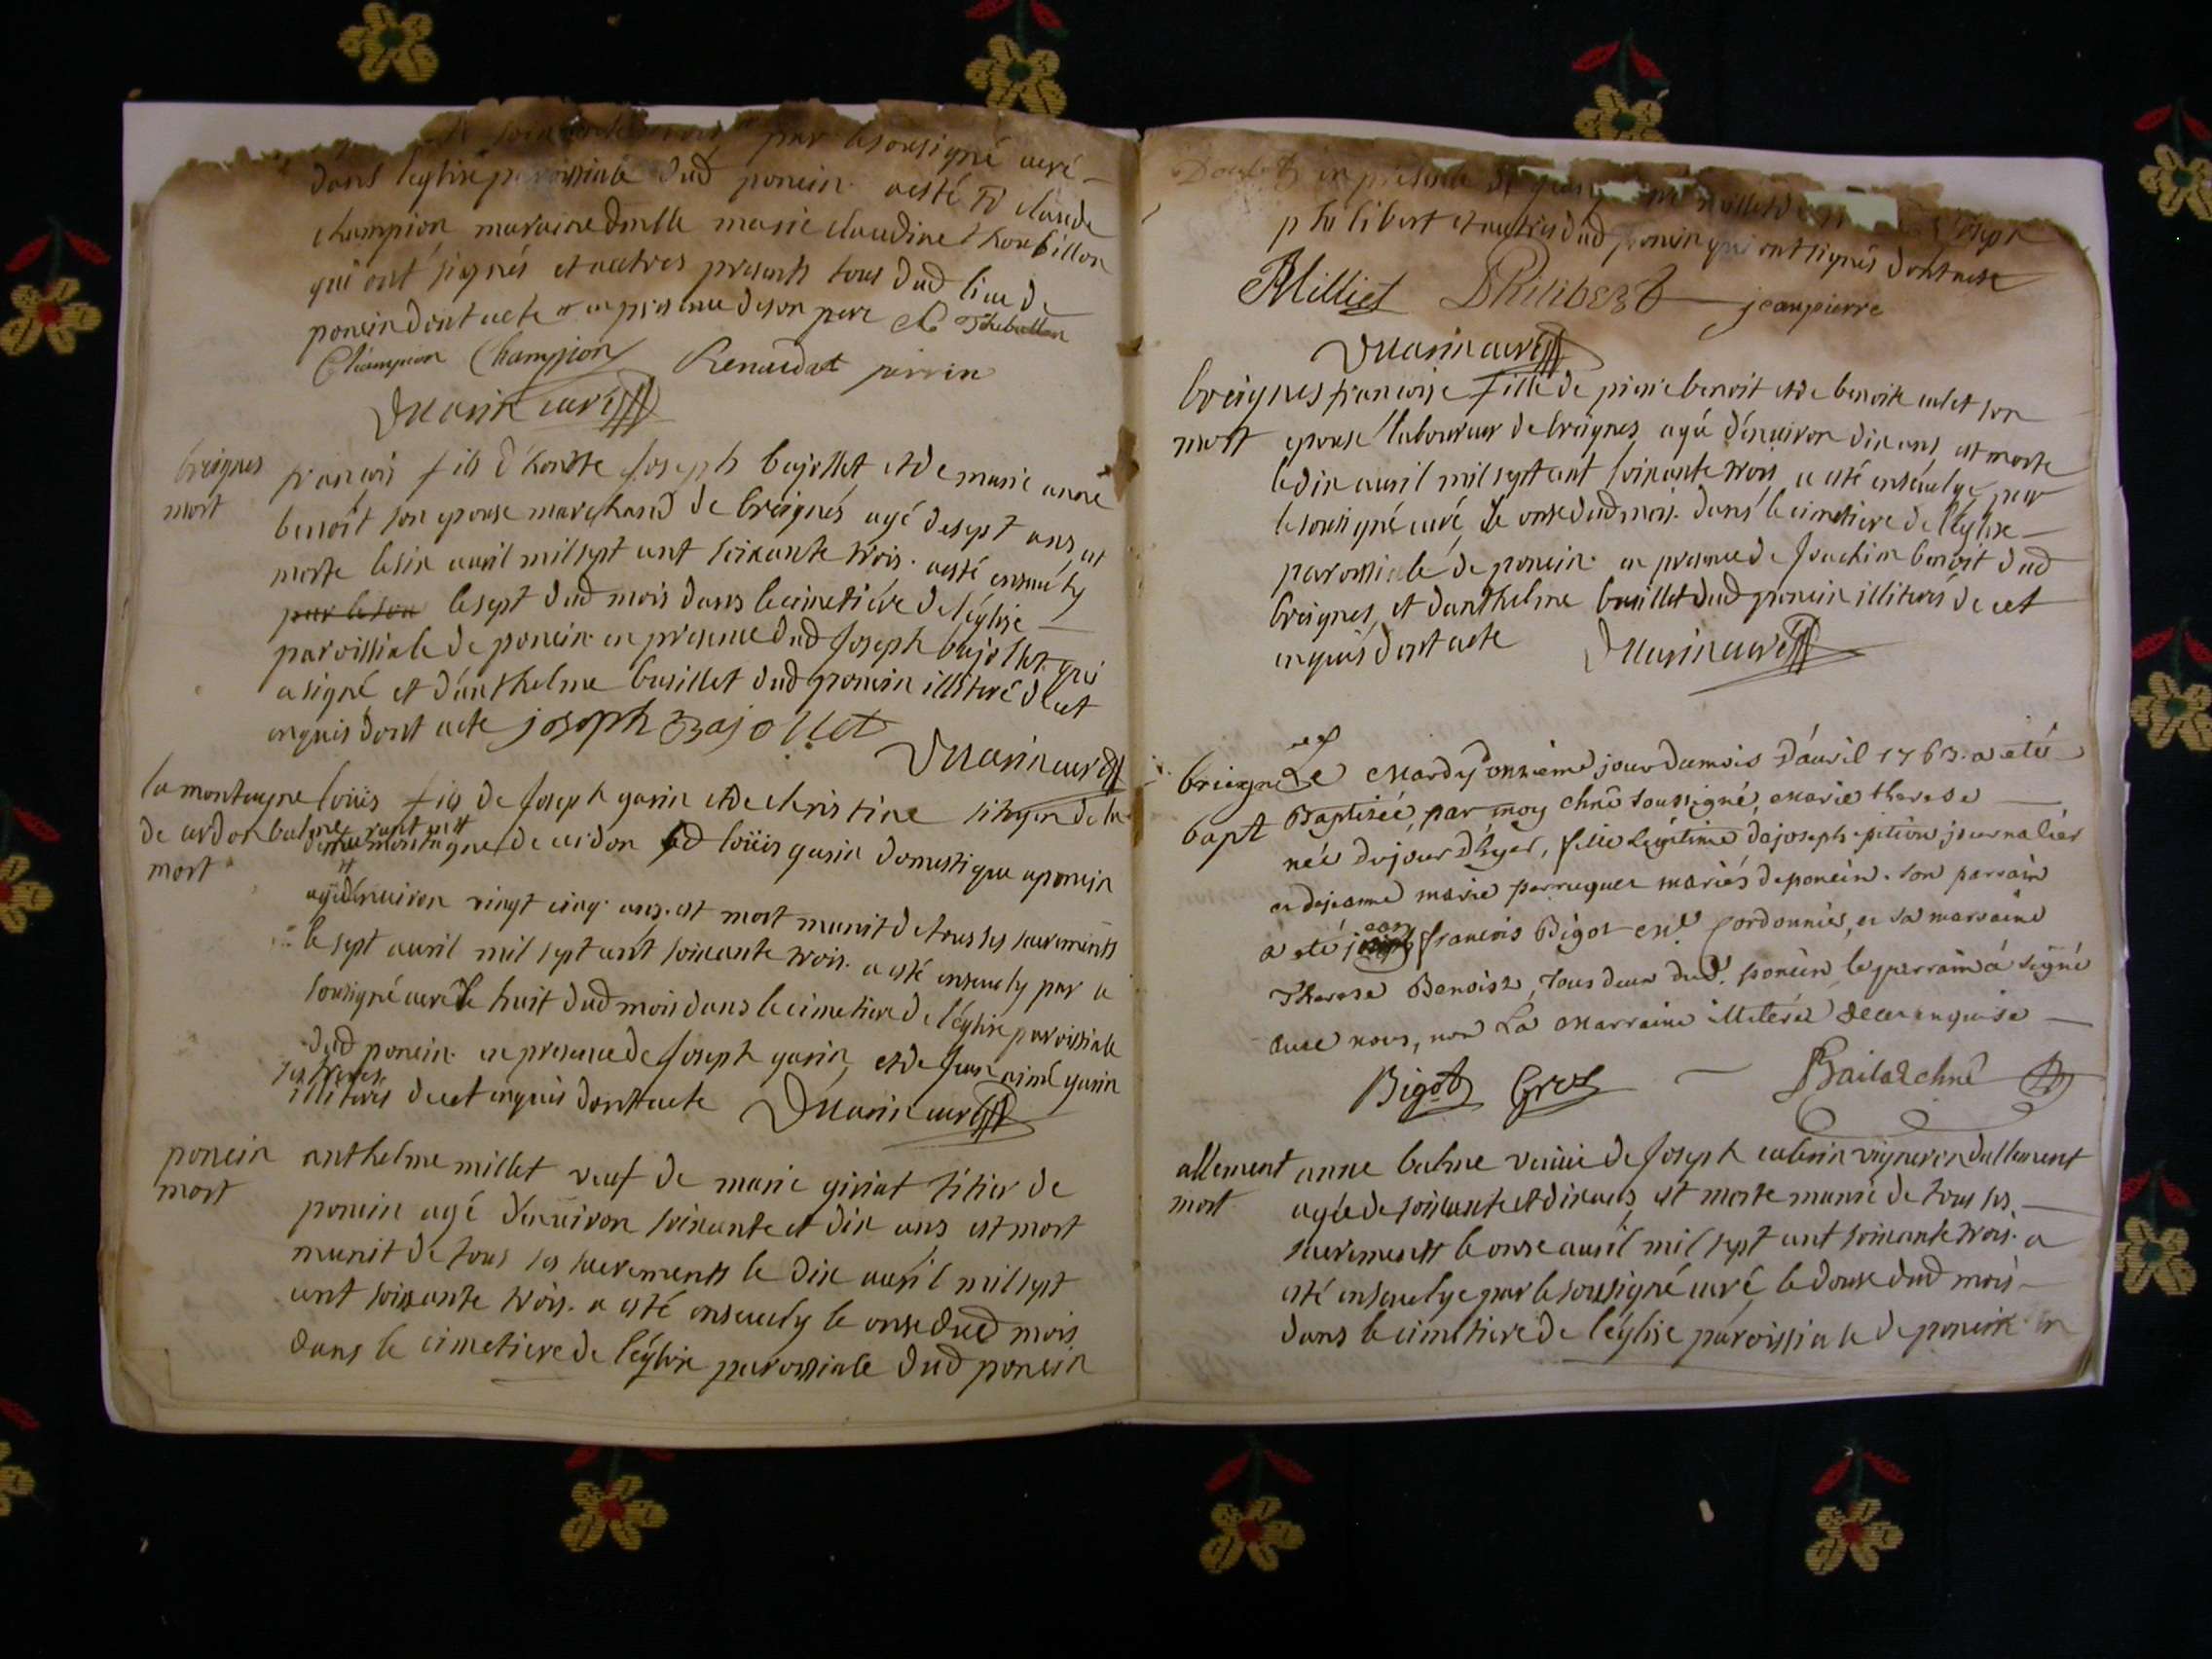 soixante trois par le sousigné curé
dans leglise paroissiale dud poncin a esté Pr claude
champion maraine dmlle marie claudine thoubillon
qui ont signés et autres presents tous dud lieu de
poncin dont acte en presence de son pere
Champion Champion Renaudat perrin
Marin curé
breignes
mort
francois fils d'honste Joseph bajollet et de marie anne
benoit son epouse marchand de breignes agé de sept ans, est
morte le six avril mil sept cent soixante trois. a esté ensevely
par le sou le sept dud mois dans le cimetiére de léglise
paroissiale de poncin en presence dud Joseph bajollet qui
a signé et d'anthelme busillet dud poncin illiteré de cet
enquis dont acte joseph Bajollet
Marin curé
la montagne
de cerdon balme
mort
loüis fils de Joseph gasin et de christine de la
montagne de cerdon led loüis gasin domestique a poncin
agé denviron vingt cinq ans. est mort munit de tous ses sacrements
le sept avril mil sept cent soixante trois. a esté ensevely par le
sousigné curé le huit dud mois dans le cimetiere de léglise paroissiale
dud poncin. en presence de Joseph gasin, et de Jean aimé gasin
ses freres
illiterés de cet enquis dont acte Marin curé
poncin
mort
anthelme millet veuf de marie giriat titier de
poncin agé d'environ soixante et dix ans est mort
munit de tous ses sacrements le dix avril mil sept
cent soixante trois. a esté ensevely le onze dud mois
dans le cimetiere de léglise paroissiale dud poncin
en presence de
philibert et autres dud poncin qui ont signés dont acte
Milliet Philibert jeanpierre
Marin curé
breignes
mort
francoise fille de pierre benoit et de benoite culet son
epouse laboureur de breignes, agé d'environ dix ans, est morte
le dix avril mil sept cent soixante trois a esté ensevelye par
le sousigné curé, le onze dud mois. dans le cimetiere de léglise
paroissiale de poncin. en presence de Joachim benoit dud
breignes, et danthelme busillet dud poncin illiterés de cet
enquis dont acte Marin curé
breigne
bapt
Le Mardy onzieme jour du mois d'avril 1763. a eté
Baptisée, par moy chne soussigné, Marie therese
née du jour d'hyer, fille legitime de joseph pition journalier
et de jeanne marie perruquet mariés de poncin. son parrain
a eté jean francois Bigot Me Cordonnier, et sa marraine
Therese Benoist, tous deux dud. poncin le parrain a signé
avec nous, non La Marraine illiterée de ce enquise
Bigot Gros Baila chne
allement
mort
anne balme veuve de Joseph cabrin vigneron dallement
agée de soixante et dix ans, est morte munie de tous ses
sacrements le onze avril mil sept cent soixante trois. a
esté ensevelye par le sousigné curé, le douze dud mois
dans le cimetiere de l'église paroissiale de poncin en